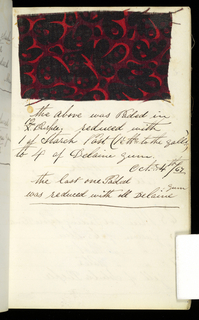 the above was Paded in
reduced with
1 of Starch Pold (12 lbs to the gall)
to 4 of Delaine gum.
Oct 24th/62
the last one Paded
was reduced with all Delaine gum